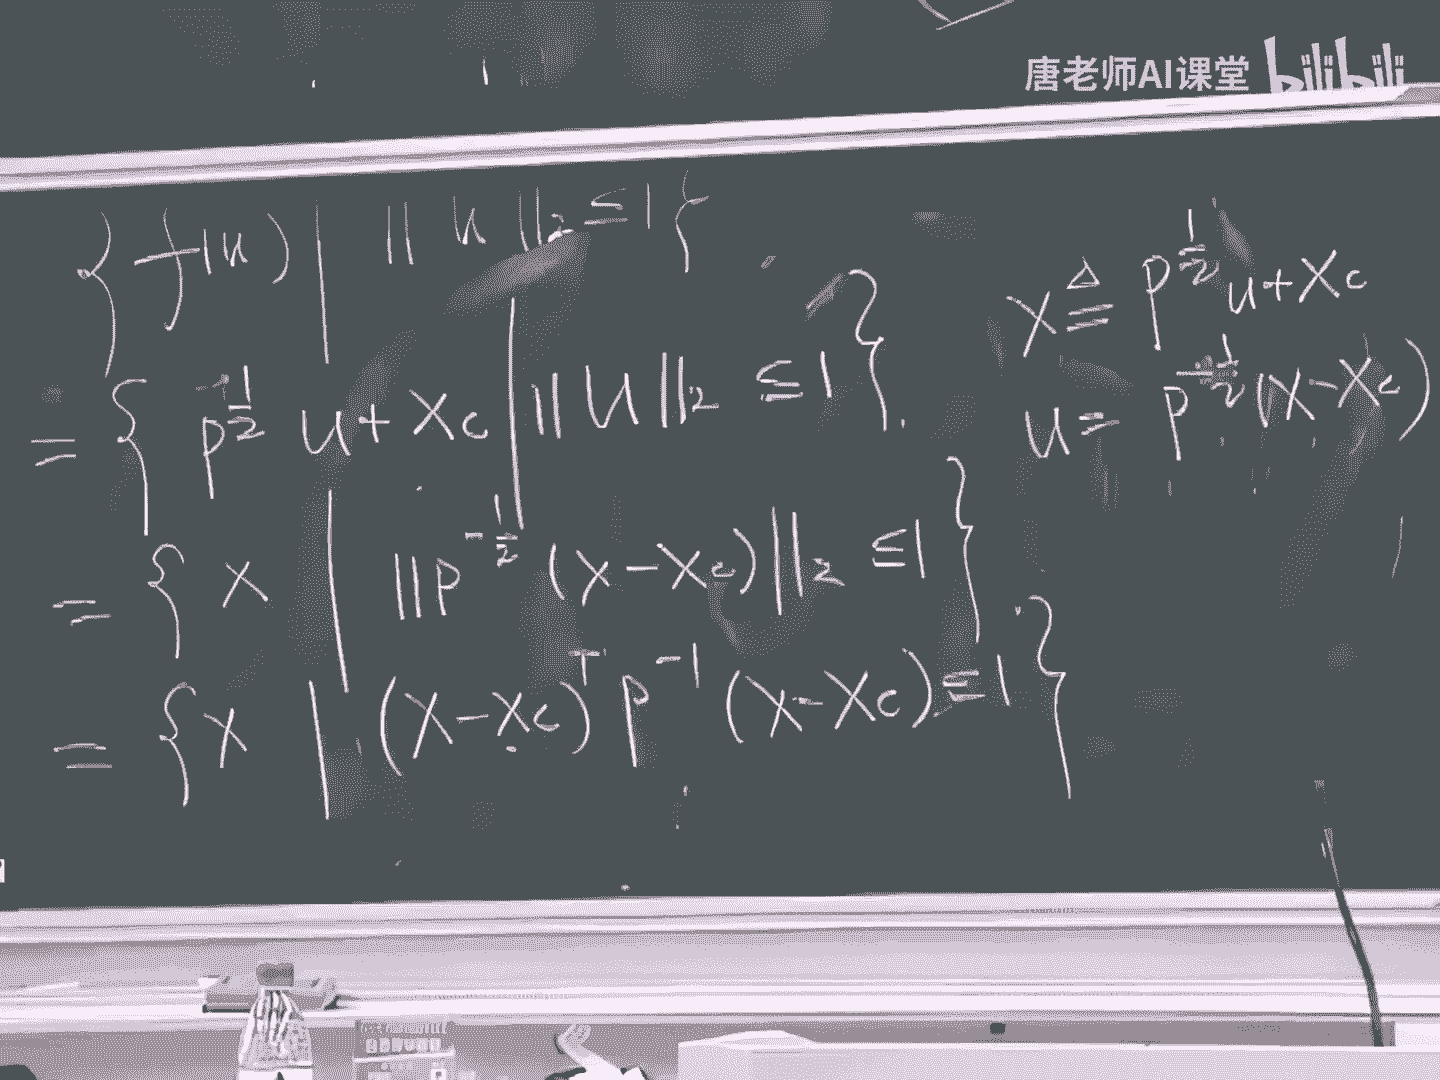 唐老师AI课堂 bilibili
{f(u) | ‖u‖₂ ≤ 1}
= {P^{1/2} u + Xc | ‖u‖₂ ≤ 1}.
= {x | ‖P^{-1/2} (x - xc)‖₂ ≤ 1}
= {x | (x - xc)^T P^{-1} (x - xc) ≤ 1}
x ≜ P^{1/2} u + Xc
u = P^{-1/2} (x - xc)